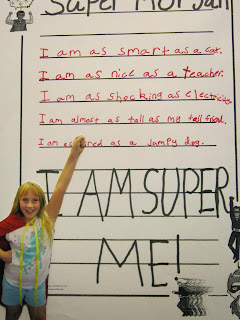 Super Morgan
I am as smart as a cat.
I am as nice as a teacher.
I am as shocking as electricity.
I am almost as tall as my tall friend.
I am as as a jumpy dog.
I AM SUPER
ME!